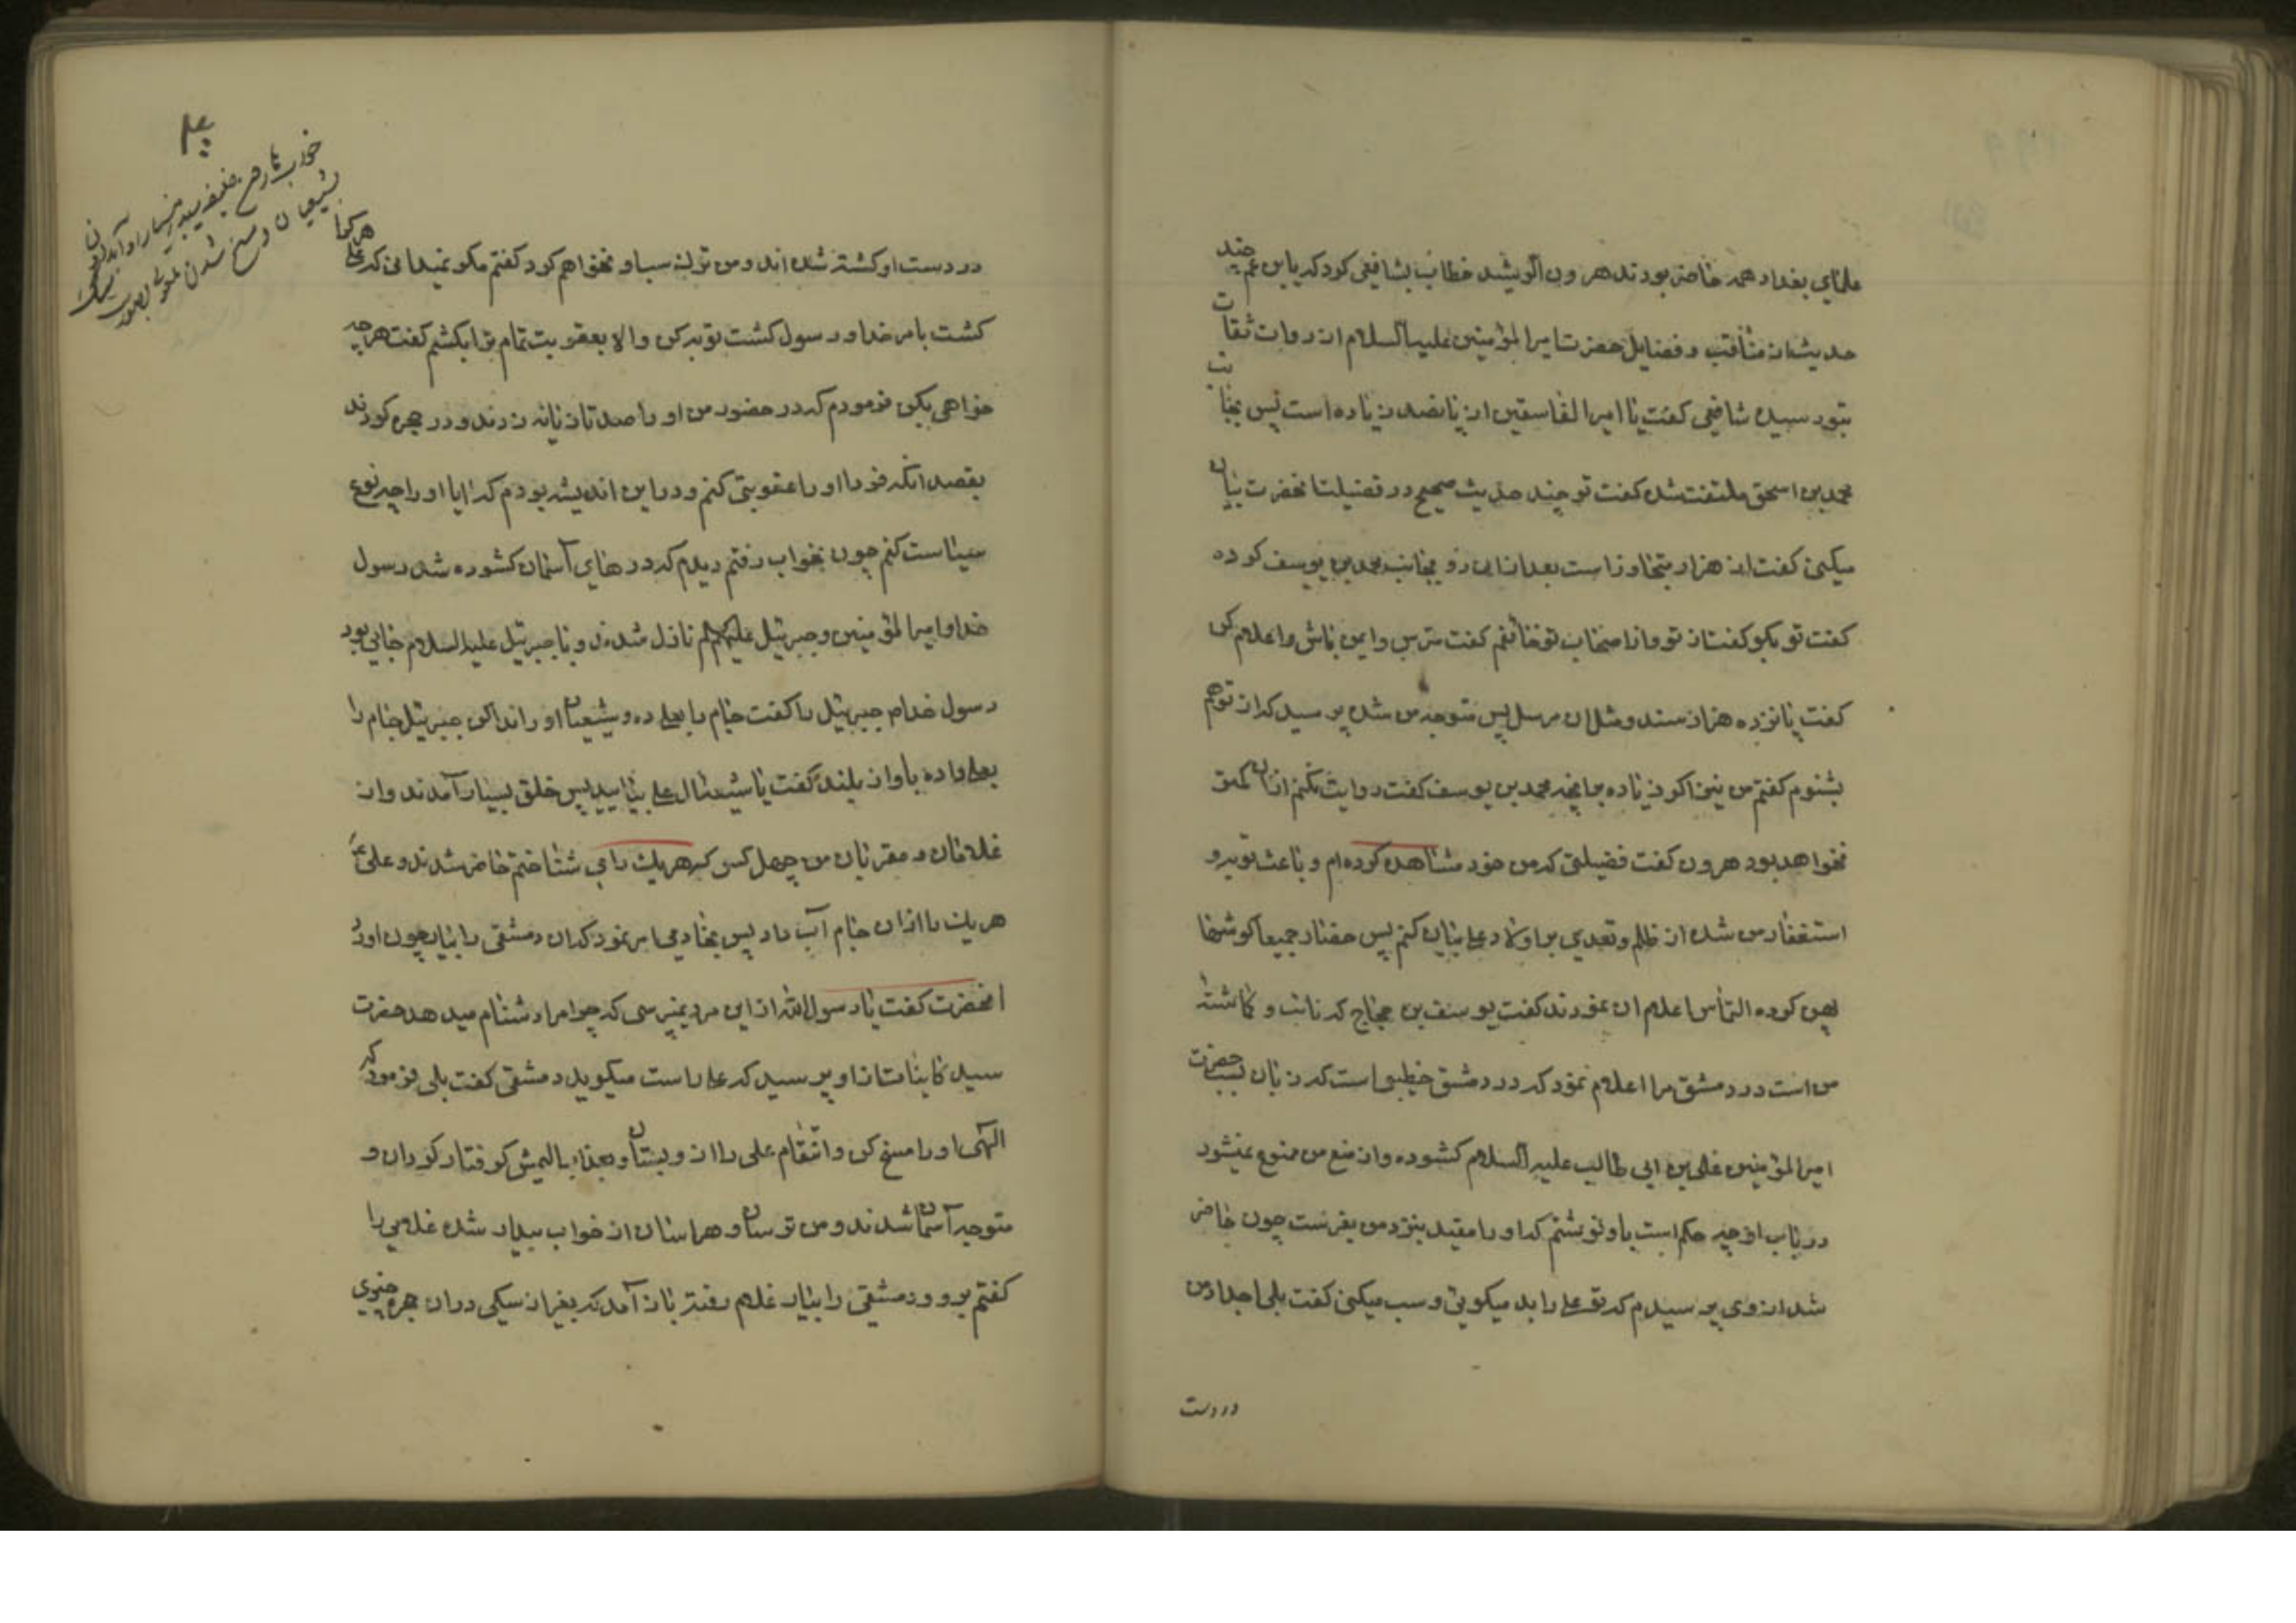 علمای بغداد همه حاضر بودند هرون الرشید خطاب بشافعی کرد که یا بن عم چند
حدیث از مناقب و فضایل حضرت امیر المؤمنین علیه السلام از روات ثقات
بتو رسیده شافعی کفت یا امیر الفاسقین از پانصد زیاده است پس بجانب
محمد بن اسحق ملتفت شده کفت تو چند حدیث صحیح در فضیلت انحضرت بیان
میکنی کفت از هزار متجاوز است بعد از ان روی بجانب محمد بن یوسف کرده
کفت تو بکو کفت از تو و از اصحاب تو خائفم کفت مترس و ایمن باش و اعلام کن
کفت پانزده هزار مسند و مثل ان مرسل پس متوجه من شده پرسید که از تو هم
بشنوم کفتم من نیز اکر زیاده بر انچه محمد بن یوسف کفت روایت نکنم ازان کمتر
نخواهد بود هرون کفت فضیلتی که من خود مشاهده کرده ام و باعث توبه و
استغفار من شده از ظلم و تعدی بر اولاد علی بیان کنم پس حضار جمیعا کوشها
پهن کرده التماس اعلام ان نمودند کفت یوسف بن حجاج که نائب و کماشته
من است در دمشق مرا اعلام نمود که در دمشق خطیبی است که زبان بسب حضرت
امیر المؤمنین علی بن ابی طالب علیه السلام کشوده و از منع من ممنوع نمیشود
در باب او چه حکم است باو نوشتم که او را مقید بنزد من بفرست چون حاضر
شد از وی پرسیدم که تو علی را بد میکوئی و سب میکنی کفت بلی اجداد من
در دست
در دست او کشته شده اند و من ترک سب او نخواهم کرد کفتم مکو نمیدانی که علی هر کرا
کشت بامر خدا و رسول کشت توبه کن و الا بعقوبت تمام ترا بکشم کفت هر چه
خواهی بکن فرمودم که در حضور من او را صد تازیانه زدند و در حجره کردند
بقصد انکه فردا او را عقوبتی کنم و در این اندیشه بودم که ایا او را چه نوع
سیاست کنم چون بخواب رفتم دیدم که درهای آسمان کشوده شد رسول
خدا و امیر المؤمنین و جبرئیل علیهم السلام نازل شدند و با جبرئیل علیه السلام جامی بود
رسول خدا جبرئیل را کفت جام را بعلی ده و شیعیان او را ندا کن جبرئیل جام را
بعلی داده باواز بلند کفت یا شیعه آل علی بیایید پس خلق بسیار آمدند و از
غلامان و مقربان من چهل کس که هر یک را می شناختم حاضر شدند و علی ع
هر یک را ازان جام آب داد پس بخادمی امر نمود که ان دمشقی را بیار چون اورد
انحضرت کفت یا رسول الله از این مرد نمیپرسی که چرا مرا دشنام میدهد حضرت
سید کاینات از او پرسید که علی راست میکوید دمشقی کفت بلی فرمود که
الهی او را مسخ کن و انتقام علی را از و بستان و بعذاب الیمش کرفتار کردان و
متوجه آسمان شدند و من ترسان و هراسان از خواب بیدار شده غلامی را
کفتم برو و دمشقی را بیار غلام رفته باز آمد که بغیر از سکی در ان حجره چیزی